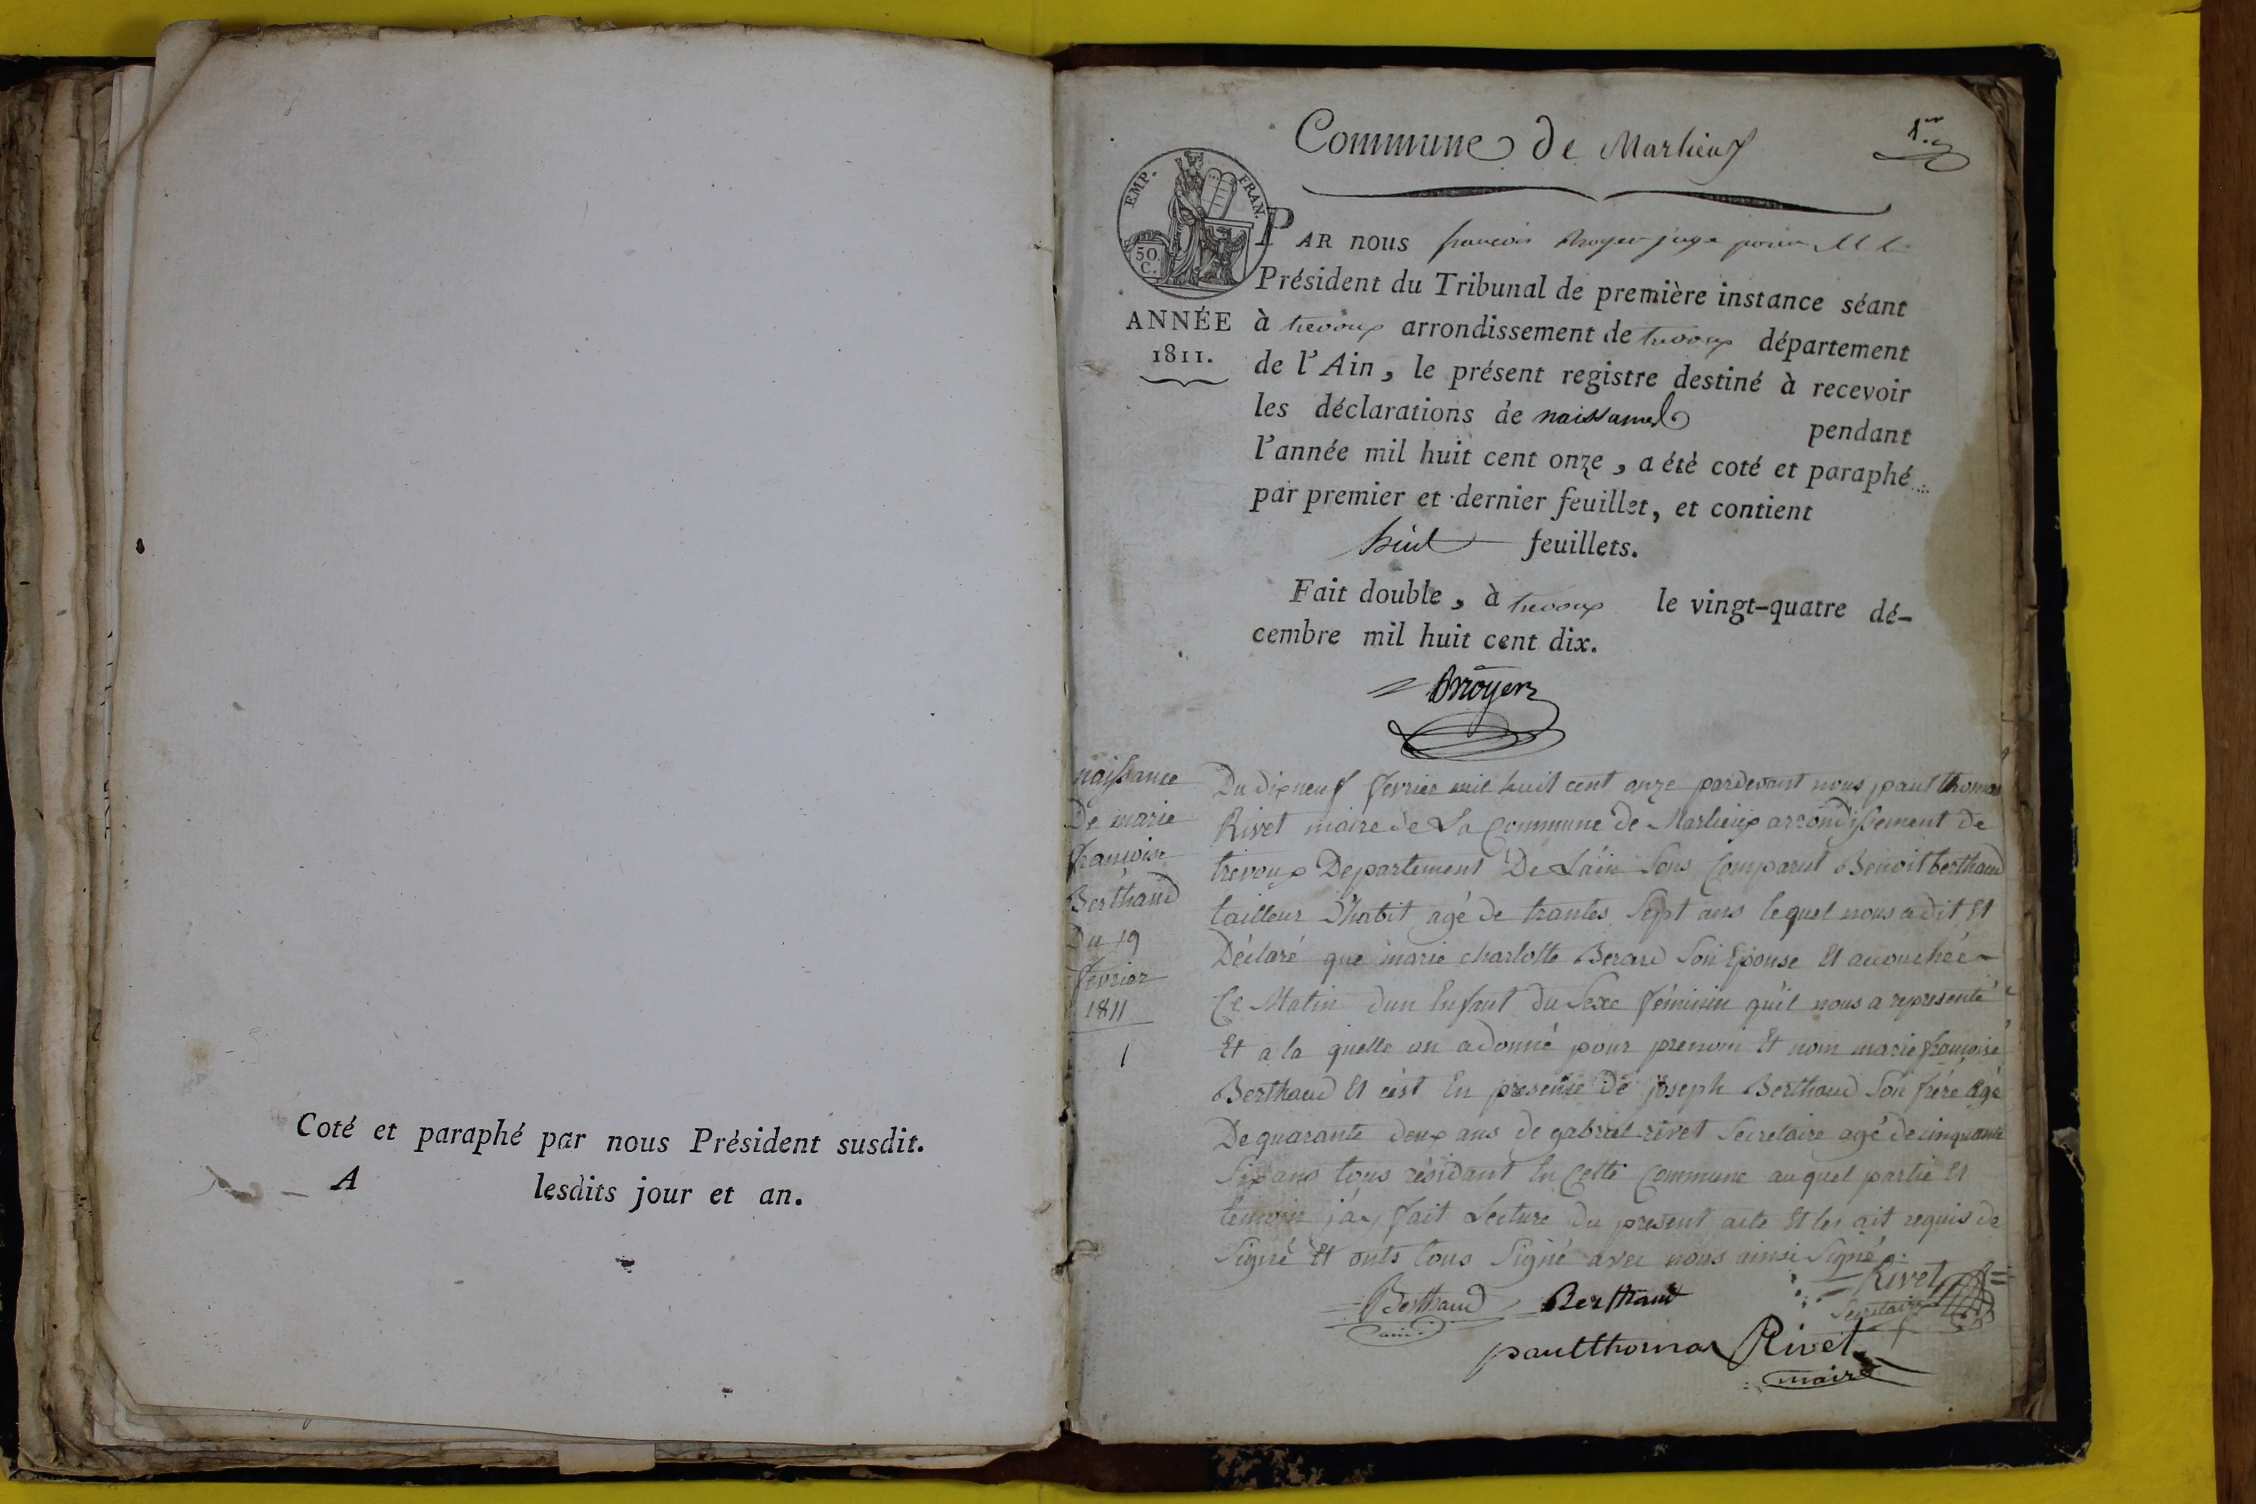 Coté et paraphé par nous Président susdit.
A lesdits jour et an.
Commune de Marlieux
1er
EMP. FRAN.
50 C.
ANNÉE
1811.
PAR nous françois juge pour M. le
Président du Tribunal de première instance séant
à trevoux arrondissement de trevoux département
de l'Ain, le présent registre destiné à recevoir
les déclarations de naissance pendant
l'année mil huit cent onze, a été coté et paraphé
par premier et dernier feuillet, et contient
huit feuillets.
Fait double, à trevoux le vingt-quatre dé-
cembre mil huit cent dix.
naissance
De marie
françoise
Berthaud
Du 19
fevrier
1811
1
Du dixneuf fevrier mil huit cent onze pardevant nous paul thomas
Rivet maire de La Commune de Marlieux arrondissement de
trevoux Departement De Lain Sons Comparut Benoit berthaud
tailleur D'habit agé de trantes Sept ans lequel nous a dit Et
Déclaré que marie charlotte Berard Son Epouse Et acouchée
Ce Matin dun Enfant du Sexe féminin quil nous a representé
Et a la quelle on a donné pour prenom Et nom marie françoise
Berthaud Et cést En presence De joseph Berthaud Son frére agé
De quarante deux ans de gabriel rivet Secretaire agé de cinquante
Six ans tous résidant En Cette Commune au quel partie Et
temoin j'ay fait Lecture du present acte Et les ait requis de
Signé Et onts tous Signé avec nous ainsi Signé
Berthaud Berthaud Rivet
Secretaire
paul thomas Rivet
maire